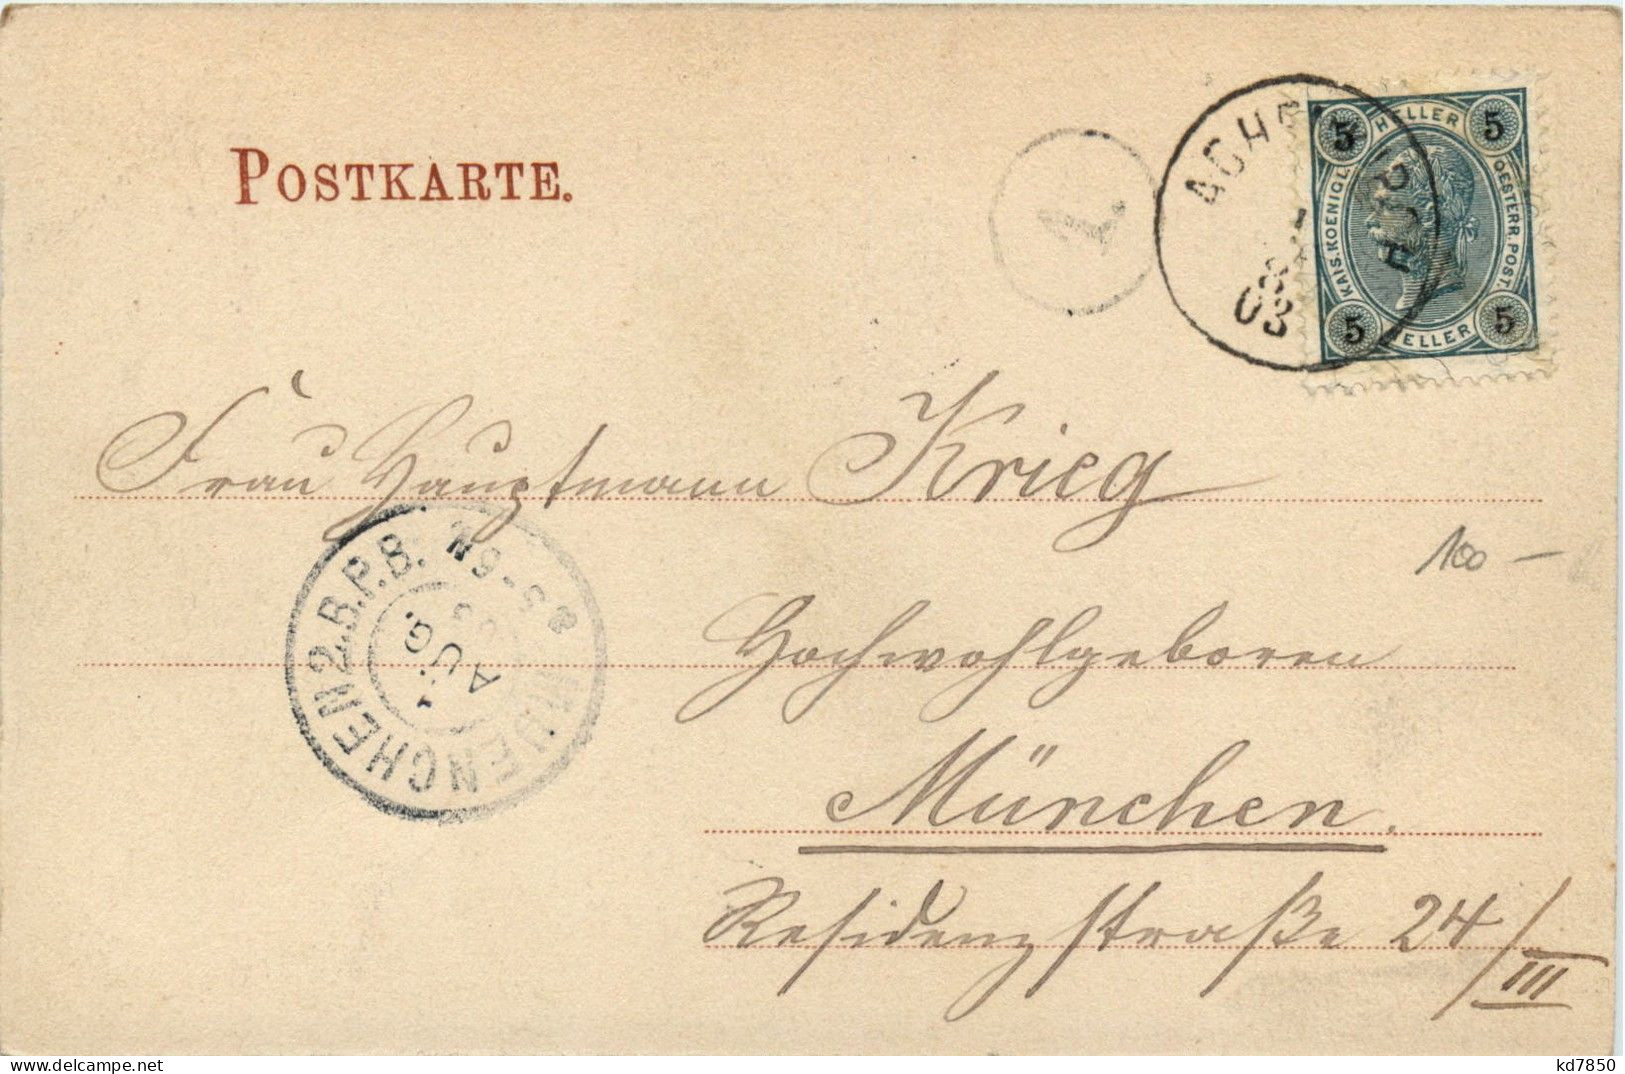 POSTKARTE.
1.
5 HELLER 5
KAIS. KOENIGL. OESTERR. POST.
5 HELLER 5
8
03
Frau Hauptmann Krieg
100 –
Hochwohlgeboren
München.
Residenzstraße 24/III
MUENCHEN 2.B.P.B. 5-6N
1.
AUG.
03
delcampe.net
kd7850